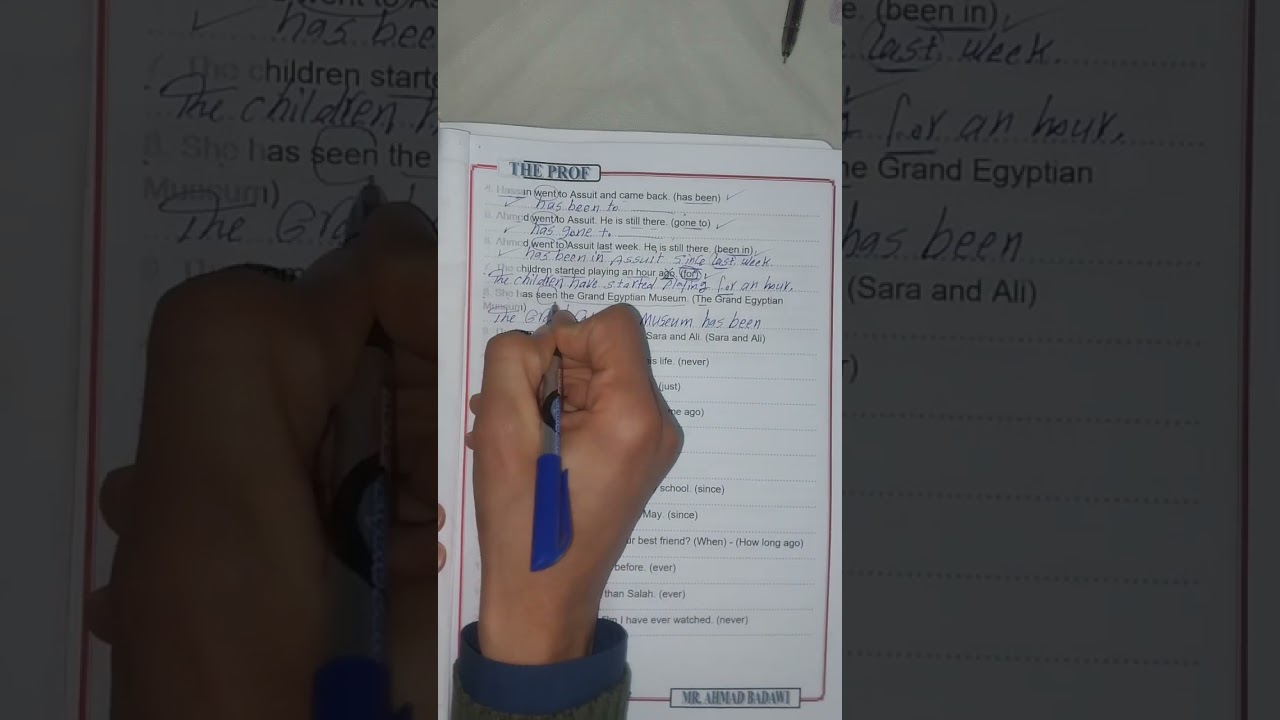 THE PROF
4. Hassan went to Assuit and came back. (has been)
has been to
5. Ahmed went to Assuit. He is still there. (gone to)
has gone to
6. Ahmed went to Assuit last week. He is still there. (been in)
has been in Assuit since last week.
7. The children started playing an hour ago. (for)
The children have started playing for an hour.
8. She has seen the Grand Egyptian Museum. (The Grand Egyptian
Museum)
The Museum has been
Sara and Ali. (Sara and Ali)
his life. (never)
(just)
ago)
school. (since)
May. (since)
best friend? (When) - (How long ago)
before. (ever)
than Salah. (ever)
I have ever watched. (never)
MR. AHMAD BADAWI